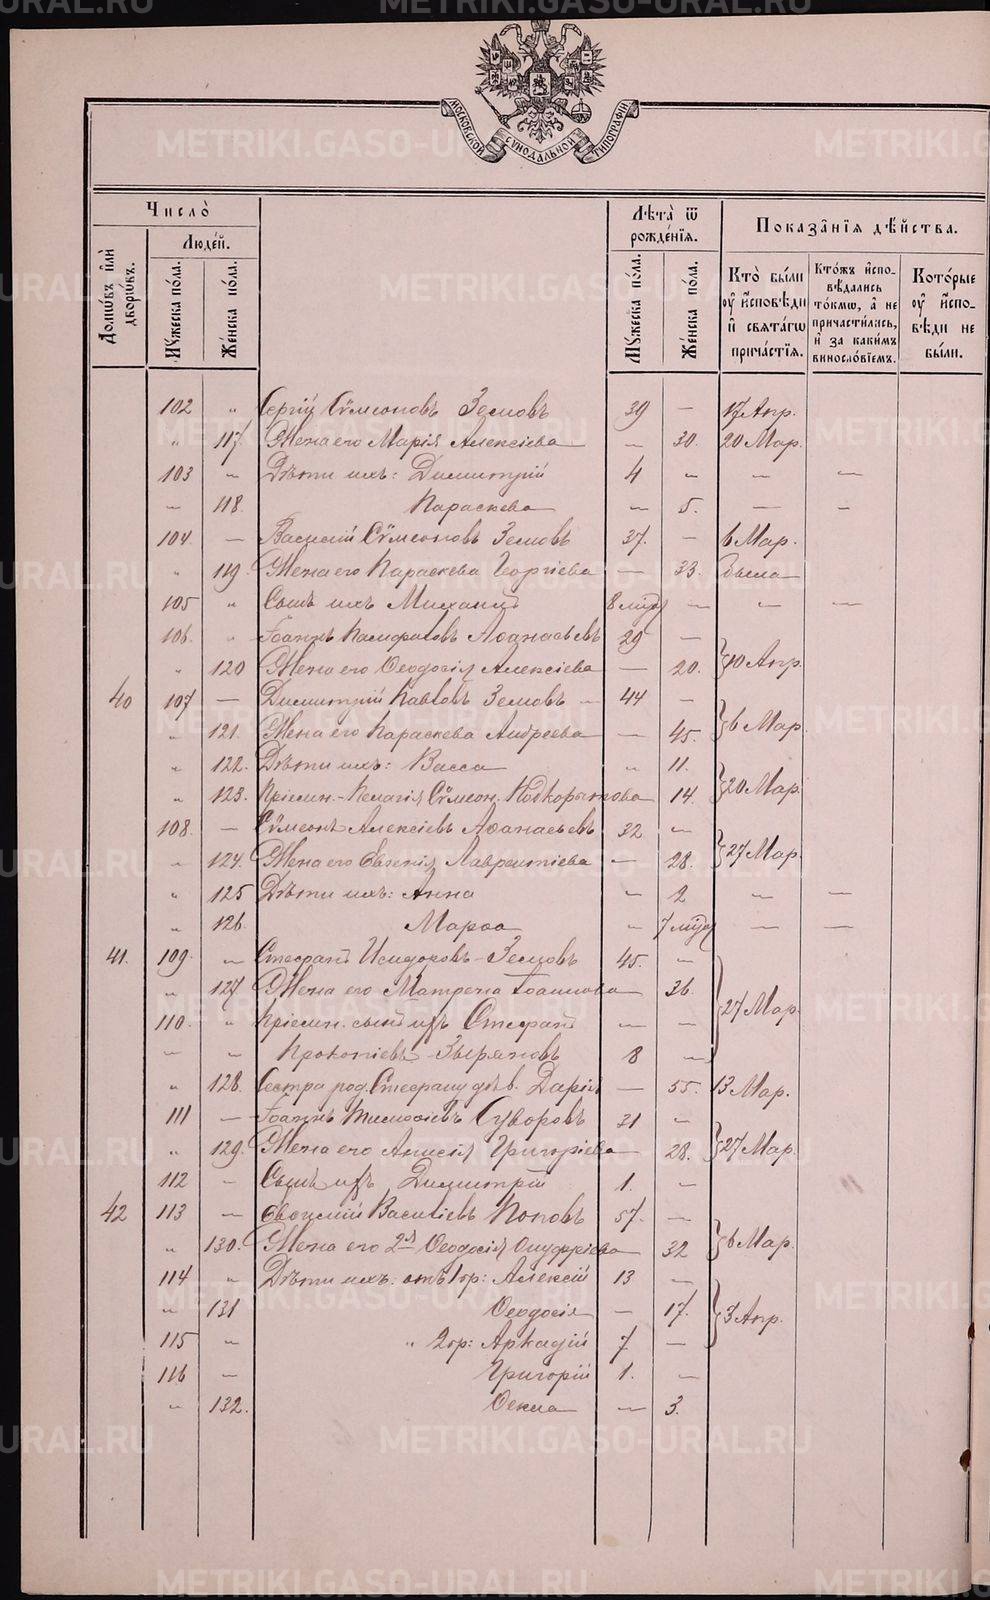 МОСКОВСКОЙ СУНОДАЛЬНОЙ ТИПОГРАФІИ
Число̀
Лѣта ѿ рожде́нїя.
Показа̑нїя дѣ́йства.
Домѡ́въ и҆лѝ дворѡ́въ.
Люде́й.
Му́жеска по́ла.
Же́нска по́ла.
Му́жеска по́ла.
Же́нска по́ла.
Кто̀ бы́ли оу҆ и҆сповѣ́ди и҆ свѧта́гѡ прича́стїя.
Кто́жъ и҆спо-вѣ́дались то́кмѡ, а҆ не причасти́лись, и҆ за каки́мъ винosло́вїемъ.
Кото́рые оу҆ и҆спо-вѣ́ди не бы́ли.
102 „ Сергій Сѵмеоновъ Земовъ 39 — 17 Апр.
„ 117 Жена его Марія Алексіева — 30. 20 Мар.
103 „ Дѣти ихъ: Димитрій 4 „ — —
— 118. Параскева — 5. — —
104. — Василій Сѵмеоновъ Земовъ 37. — 6 Мар.
„ 119 Жена его Параскева Георгіева — 33. была
105 „ Сынъ ихъ Михаилъ 8 мѣс — — —
106. „ Іоаннъ Памфиловъ Аѳанасьевъ 29 —
„ 120 Жена его Ѳеодосія Алексіева — 20. } 10 Апр.
40 107 — Димитрій Павловъ Земовъ — 44 —
„ 121. Жена его Параскева Андреева — 45. } 6 Мар.
„ 122. Дѣти ихъ: Васса „ 11.
„ 123. Пріемн. - Пелагія Сѵмеон. Подкорытова 14. } 20 Мар.
108. — Сѵмеонъ Алексіевъ Аѳанасьевъ 32 „
„ 124 Жена его Евгенія Лаврентіева — 28. } 27 Мар.
„ 125 Дѣти ихъ: Анна — 2 — —
„ 126. Марѳа „ 7 мѣс — —
41. 109. „ Стефанъ Исидоровъ - Земовъ 45. —
„ 127 Жена его Матрена Іоаннова 36. } 27 Мар.
110. „ Пріемн. сынъ ихъ Стефанъ — —
— „ Прокопіевъ Зыряновъ 8 —
„ 128. Сестра род. Стефану дѣв. Дарія — 55. 13 Мар.
111 — Іоаннъ Тимоѳіевъ Суворовъ 31 —
„ 129. Жена его Анисія Григоріева 28. } 27 Мар.
112 — Сынъ ихъ Димитрій 1. —
42 113 — Евѳимій Василіевъ Поповъ 57. —
„ 130. Жена его 2я Ѳеодосія Онуфріева 32 } 6 Мар.
114 „ Дѣти ихъ: отъ 1 бр: Алексій 13 —
„ 131 Ѳеодосія — 17. } 3 Апр.
115 „ „ 2 бр: Аркадій 7 —
116 — Григорій 1. —
„ 132. Ѳекла — 3.
METRIKI.GASO-URAL.RU